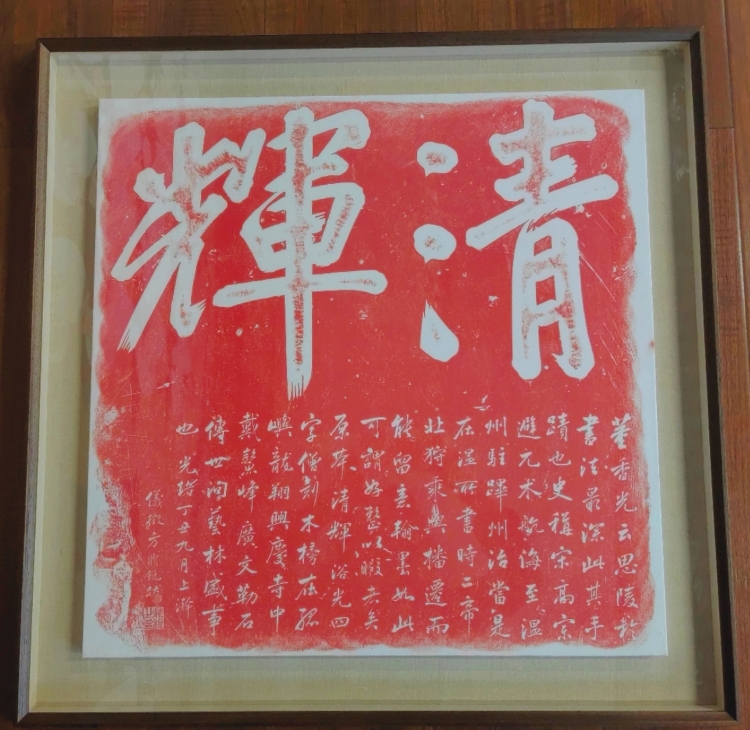 清輝
董香光云思陵於
書法最深此其手
蹟也史稱宋高宗
避兀朮航海至溫
州駐蹕州治當是
在溫所書時二帝
北狩乘輿播遷而
能留意翰墨如此
可謂好整以暇者矣
原本清輝浴光四
字僧刻木榜在孤
嶼龍翔興慶寺中
戴鰲峰廣文勒石
傳世洵藝林盛事
也光緒丁丑九月上澣
儀徵方鼎銳跋